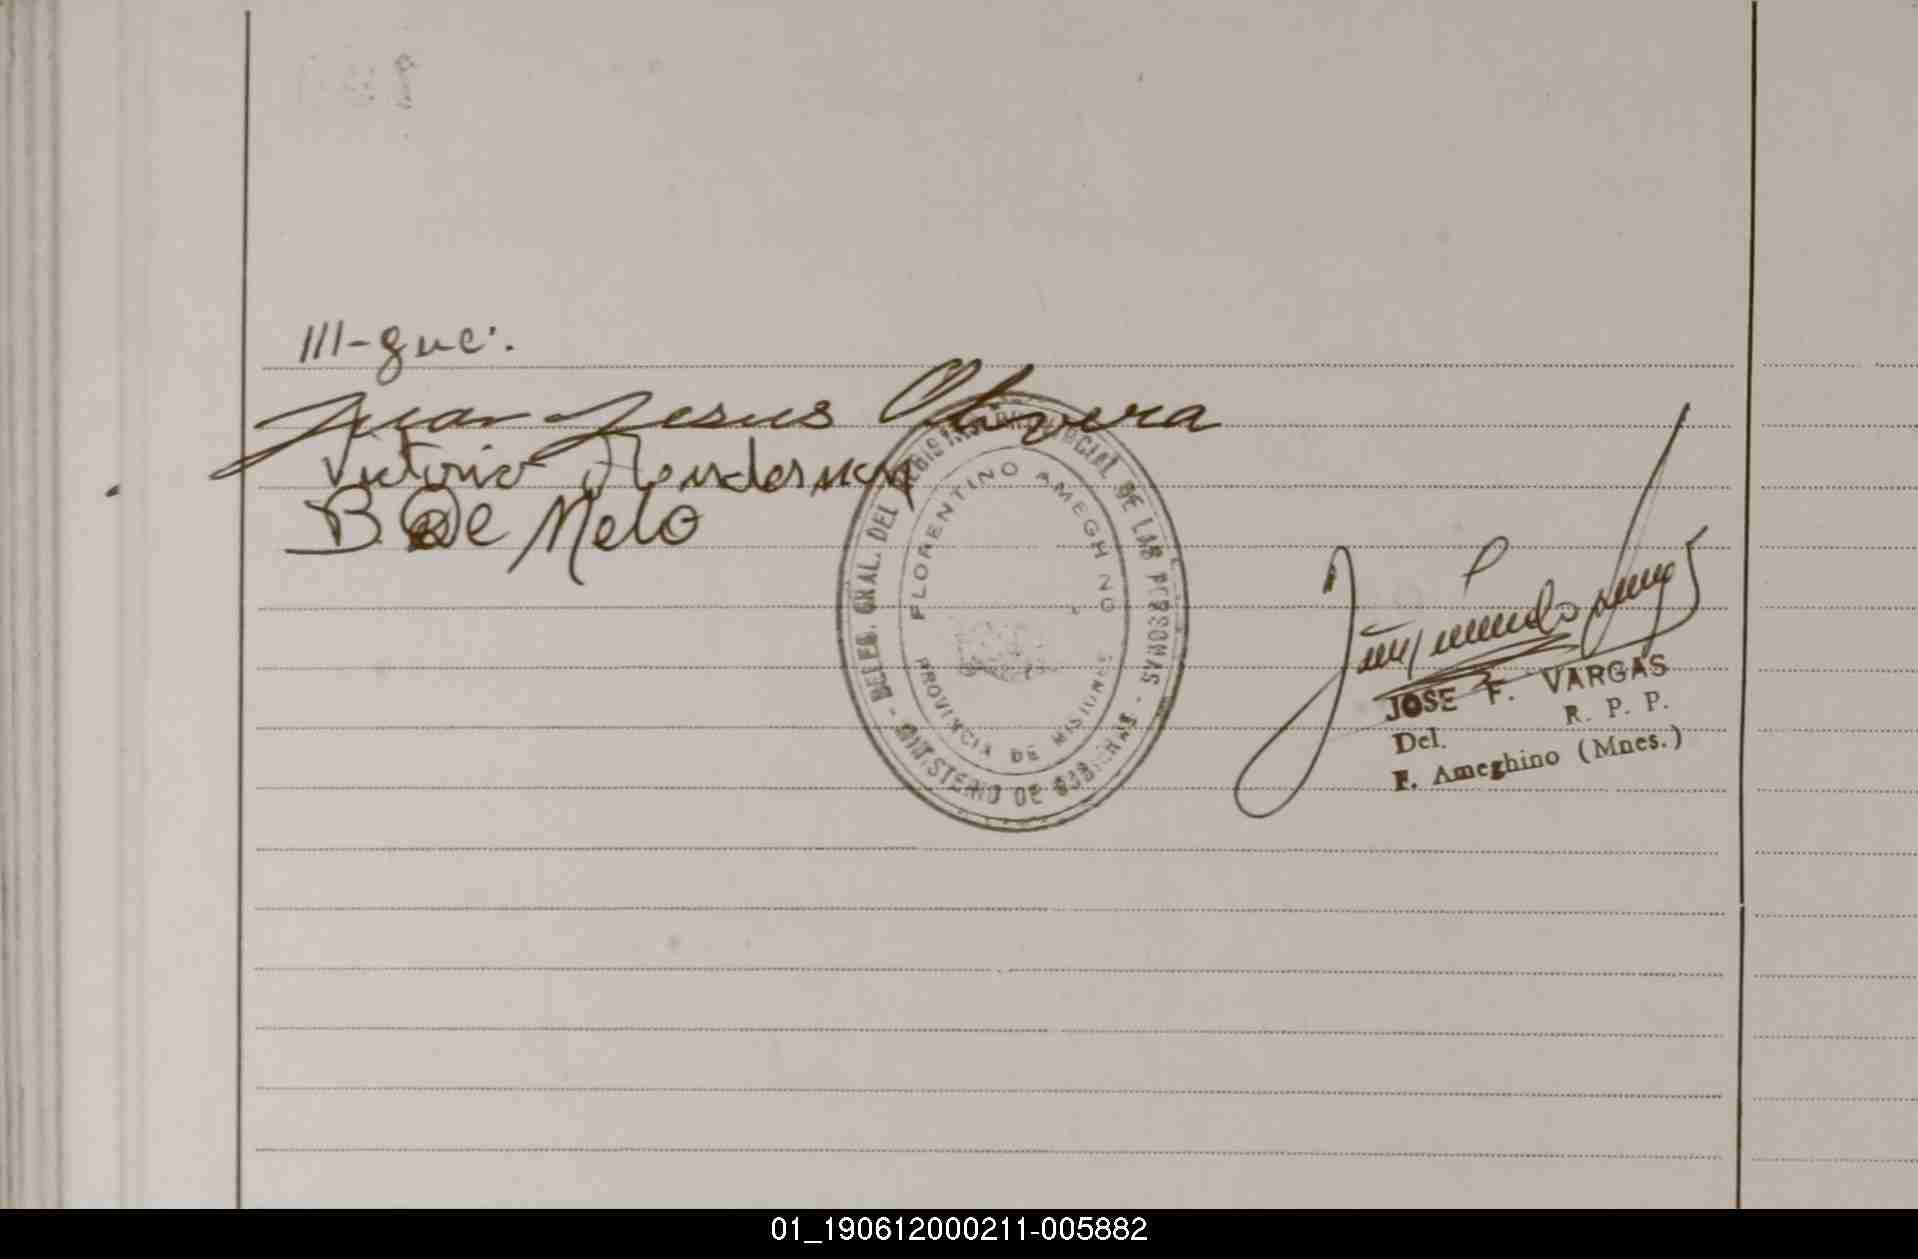 III-gue:.
Juan Jesus Olivera
Victorio
B. De Melo
DELEG. GRAL. DEL REGISTRO PROVINCIAL DE LAS PERSONAS - MINISTERIO DE GOBIERNO -
FLORENTINO AMEGHINO
PROVINCIA DE MISIONES
JOSE F. VARGAS
Del. R. P. P.
F. Ameghino (Mnes.)
01_190612000211-005882